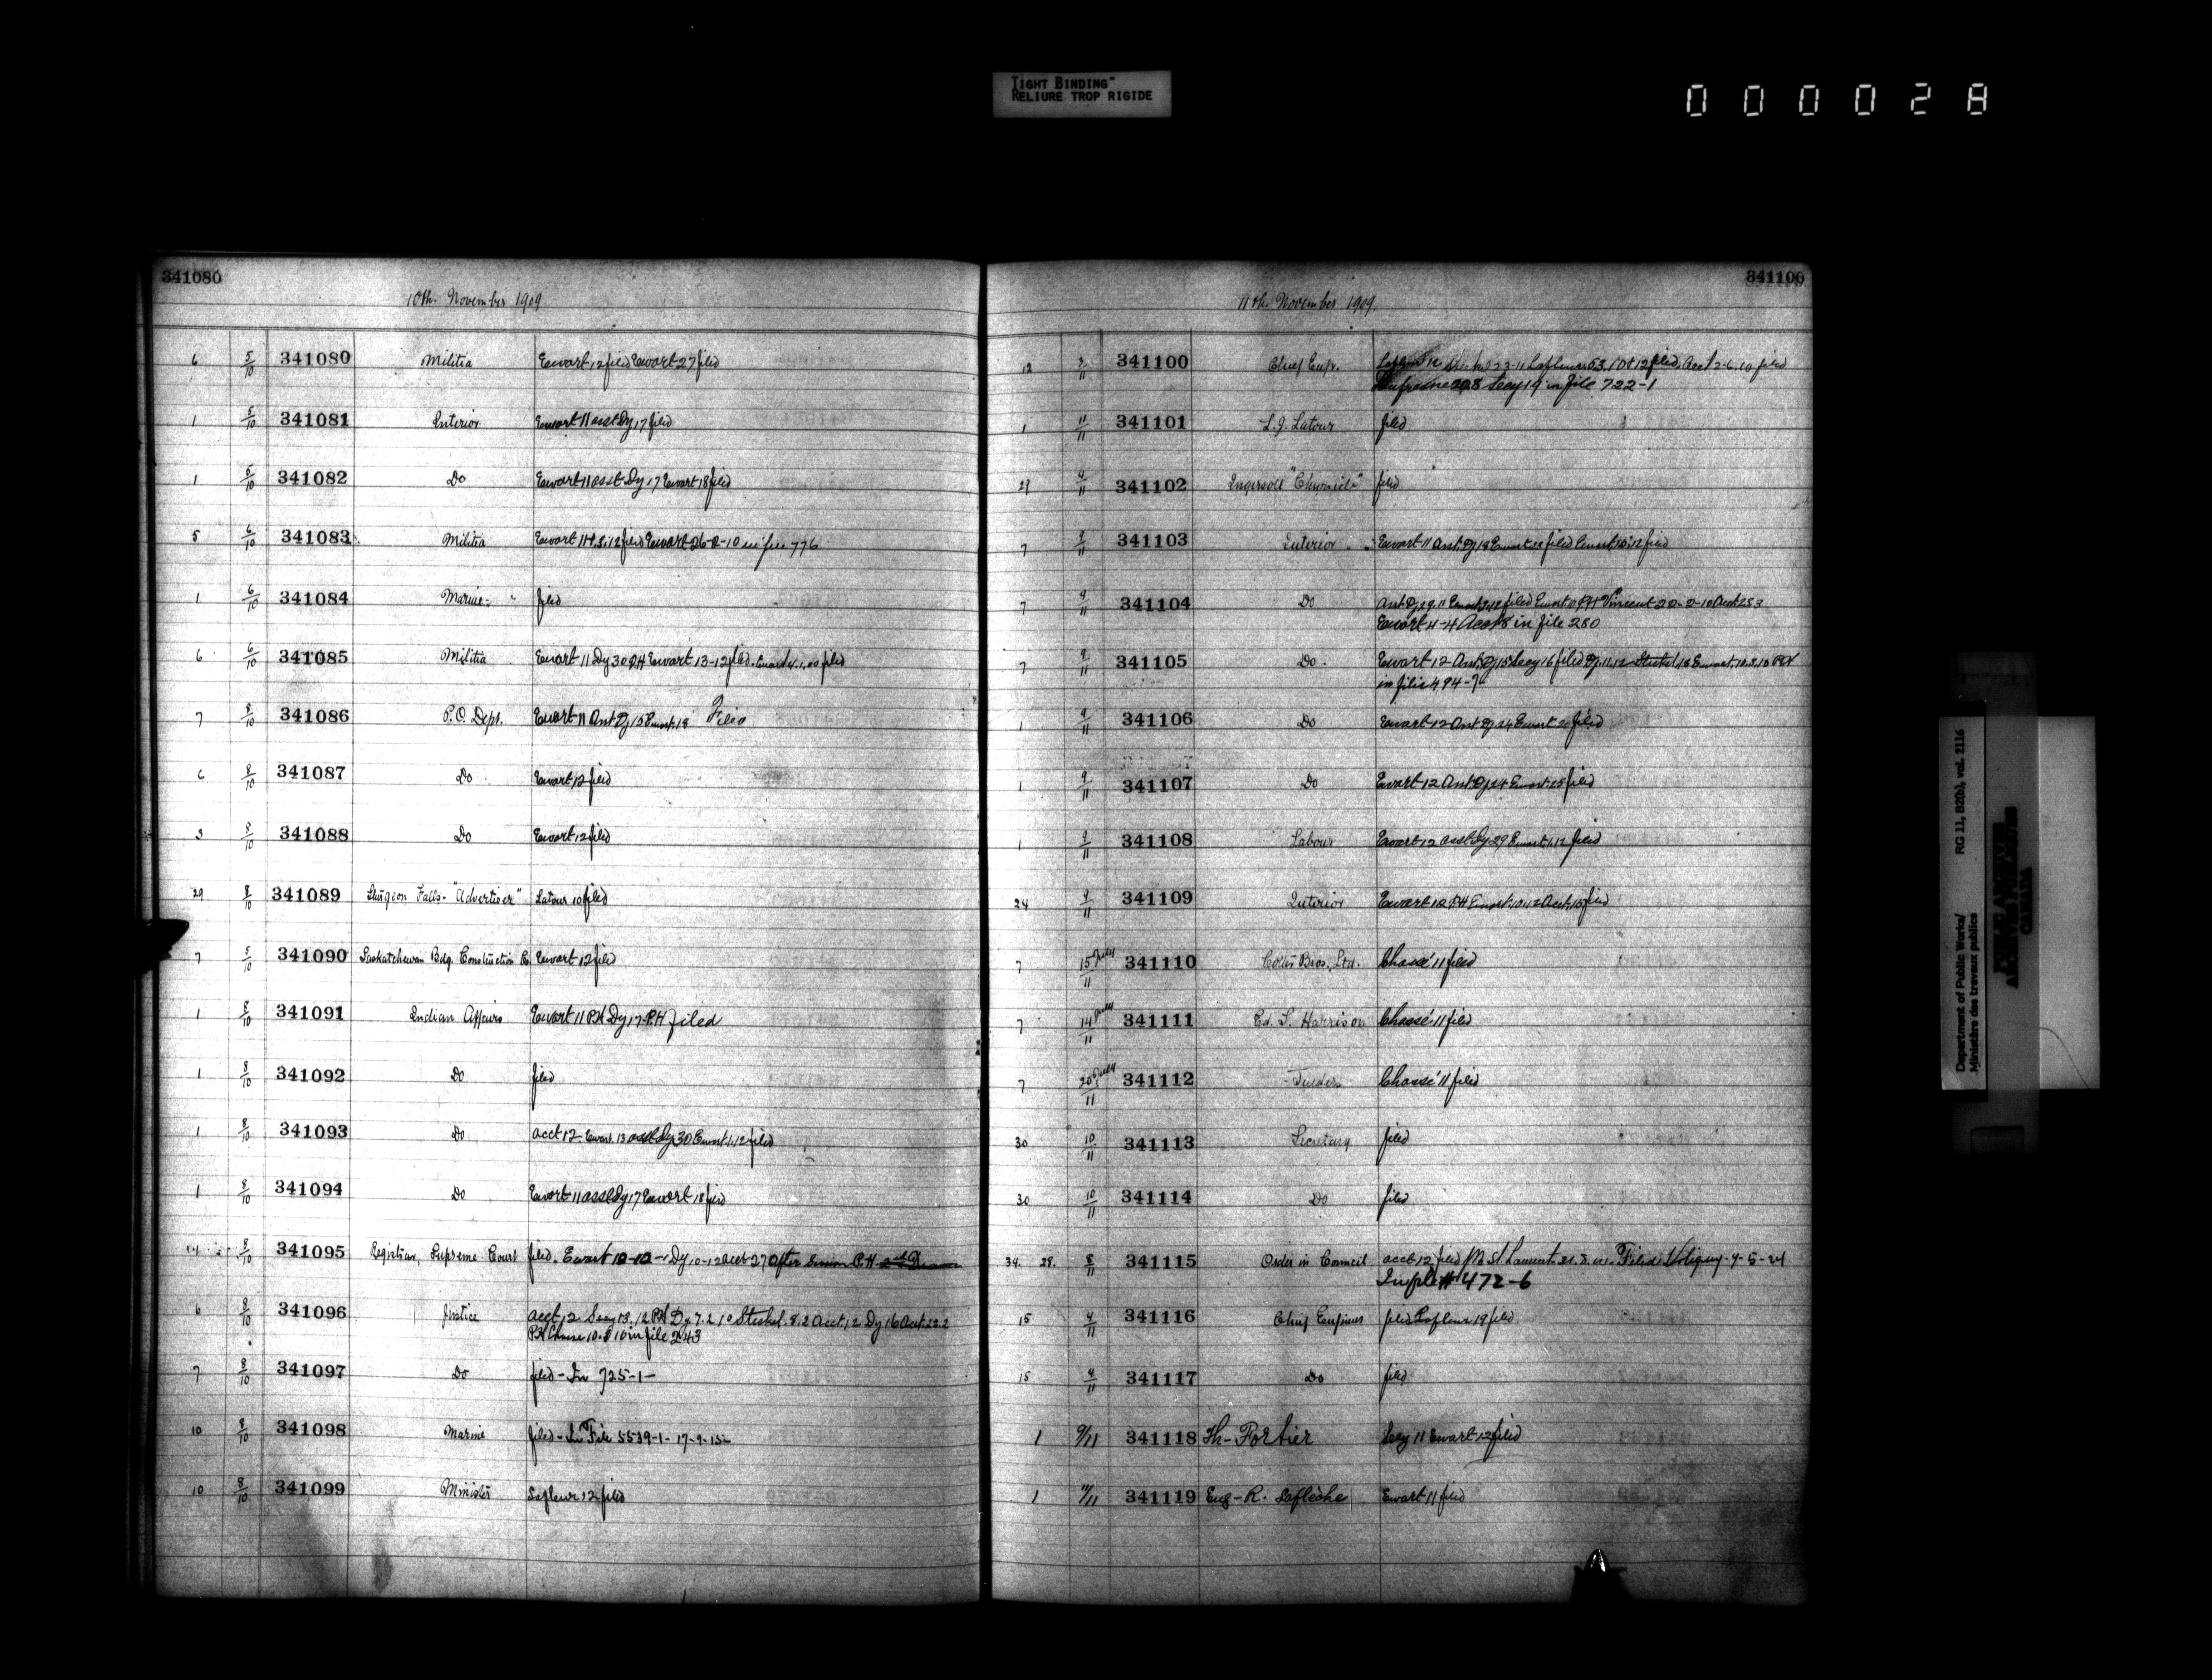 TIGHT BINDING
RELIURE TROP RIGIDE
000028
341080
10th. November 1909
6 5/10 341080 Militia Ewart 12 filed Ewart 27 filed
1 5/10 341081 Interior Ewart 11 asst Dy 17 filed
1 5/10 341082 Do Ewart 11 asst Dy 17 Ewart 18 filed
5 6/10 341083 Militia Ewart 11 filed Ewart 26-2-10 in file 776
1 6/10 341084 Marine filed
6 6/10 341085 Militia Ewart 11 Dy 30 PH Ewart 13-12 filed. Ewart 4.1.10 filed
7 8/10 341086 P.O. Dept. Ewart 11 Asst Dy 15 Ewart 18 Filed
6 8/10 341087 Do Ewart 12 filed
3 8/10 341088 Do Ewart 12 filed
29 8/10 341089 Sturgeon Falls "Advertiser" Latour 10 filed
7 5/10 341090 Saskatchewan Bdg. Construction Co. Ewart 12 filed
1 8/10 341091 Indian Affairs Ewart 11 PH Dy 17 PH filed
1 8/10 341092 Do filed
1 8/10 341093 Do acct 12 Ewart 13 asst Dy 30 Ewart 1.12 filed
1 8/10 341094 Do Ewart 11 asst Dy 17 Ewart 18 filed
8/10 341095 Registrar, Supreme Court filed. Ewart 10-12 Dy 10-12 acct 27 after P.H.
6 8/10 341096 Justice acct 12 Secy 13.12 PH Dy 7.2.10 Steckel 8.2 acct 12 Dy 16 acct 22.2
PH in file 243
7 8/10 341097 Do filed - In 725-1-
10 8/10 341098 Marine filed - In File 5539-1- 17-9-15-
10 8/10 341099 Minister Lafleur 12 filed
341100
11th. November 1909.
12 3/11 341100 Chief Engr. Lafleur 12 filed, Acct 2-6.10 filed
Secy 19 in file 722-1
1 11/11 341101 L.J. Latour filed
29 4/11 341102 Ingersoll "Chronicle" filed
7 9/11 341103 Interior Ewart 11 Asst. Dy 18 Ewart filed Ewart 10.12 filed
7 9/11 341104 Do Asst Dy 29.11 Ewart filed Ewart PH Vincent 22-2-10 Acct 25.3
Ewart 4-4 Acct 8 in file 280
7 9/11 341105 Do. Ewart 12 Asst. Dy 15 Secy 16 filed Dy. 11.12 Steckel 18 Ewart. 10.3.10 PH
in file 494-7
1 9/11 341106 Do Ewart 12 Asst Dy 24 Ewart 26 filed
1 9/11 341107 Do Ewart 12 Asst Dy 24 Ewart 25 filed
1 9/11 341108 Labour Ewart 12 asst Dy 29 Ewart 1.12 filed
24 9/11 341109 Interior Ewart 12 PH Ewart 10.12 Acct. 15 filed
7 15 July/11 341110 Bros., Ltd. Chassé 11 filed
7 14 July/11 341111 Ed. S. Harrison Chassé 11 filed
7 20 July/11 341112 Tenders Chassé 11 filed
30 10/11 341113 Secretary filed
30 10/11 341114 Do filed
34. 28. 8/11 341115 Order in Council acct 12 filed M. St Laurent Filed 9-5-21
In file #472-6
15 4/11 341116 Chief Engineer filed Lafleur 19 filed
15 9/11 341117 Do filed
1 9/11 341118 Th- Fortier Secy 11 Ewart 12 filed
1 11/11 341119 Eug-R. Laflèche Ewart 11 filed
Department of Public Works/
Ministère des travaux publics
RG 11, B2(b), vol. 2116
PUBLIC ARCHIVES
ARCHIVES PUBLIQUES
CANADA